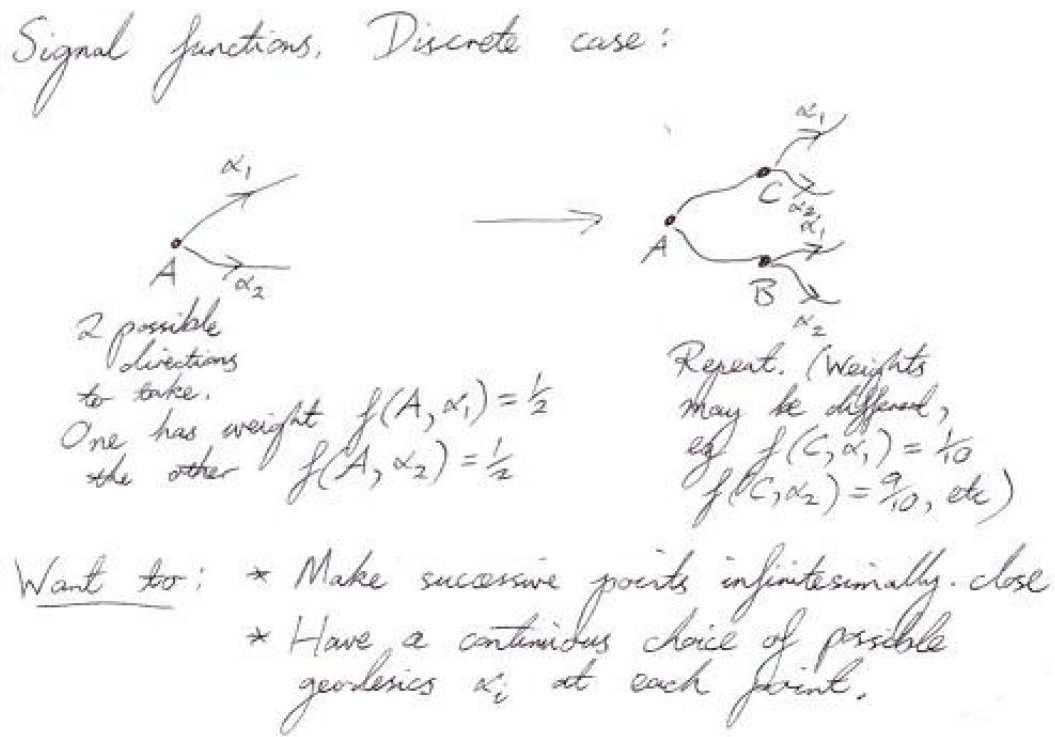 Signal functions. Discrete case:
α1
α2
A
α1
C
α2
α1
A
B
α2
2 possible
directions
to take.
One has weight f(A, α1) = 1/2
the other f(A, α2) = 1/2
Repeat. (Weights
may be different,
eg f(C, α1) = 1/10
f(C, α2) = 9/10, etc)
Want to: * Make successive points infinitesimally close
* Have a continuous choice of possible
geodesics αi at each point.